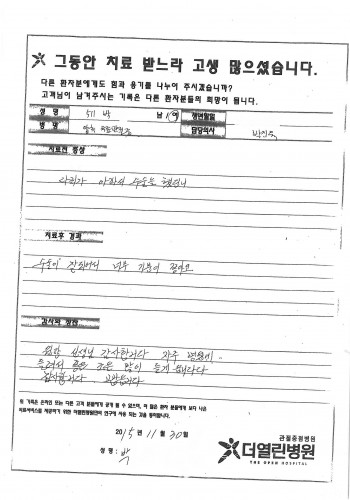 그동안 치료 받느라 고생 많으셨습니다.
다른 환자분에게도 힘과 용기를 나누어 주시겠습니까?
고객님이 남겨주시는 기록은 다른 환자분들의 희망이 됩니다.
성 명 남/여 생년월일
병 명 담당의사
치료전 증상
다리가 아파서 수술을 했더니
치료후 경과
수술이 잘되어서 너무 기분이 좋아요
감사와 칭찬
원장 선생님 감사합니다 자주 병원에
들려서 좋은 조은 많이 듣기 됩니다
감사합니다 고맙습니다
본 기록은 온라인 또는 다른 고객 분들에게 공개 될 수 있으며, 더 많은 환자 분들에게 보다 나은
의료서비스를 제공하기 위한 더열린병원만의 연구에 사용 되는 것을 동의합니다.
2015년 11월 30일
성 명 : 박
관절종합병원
더열린병원
THE OPEN HOSPITAL